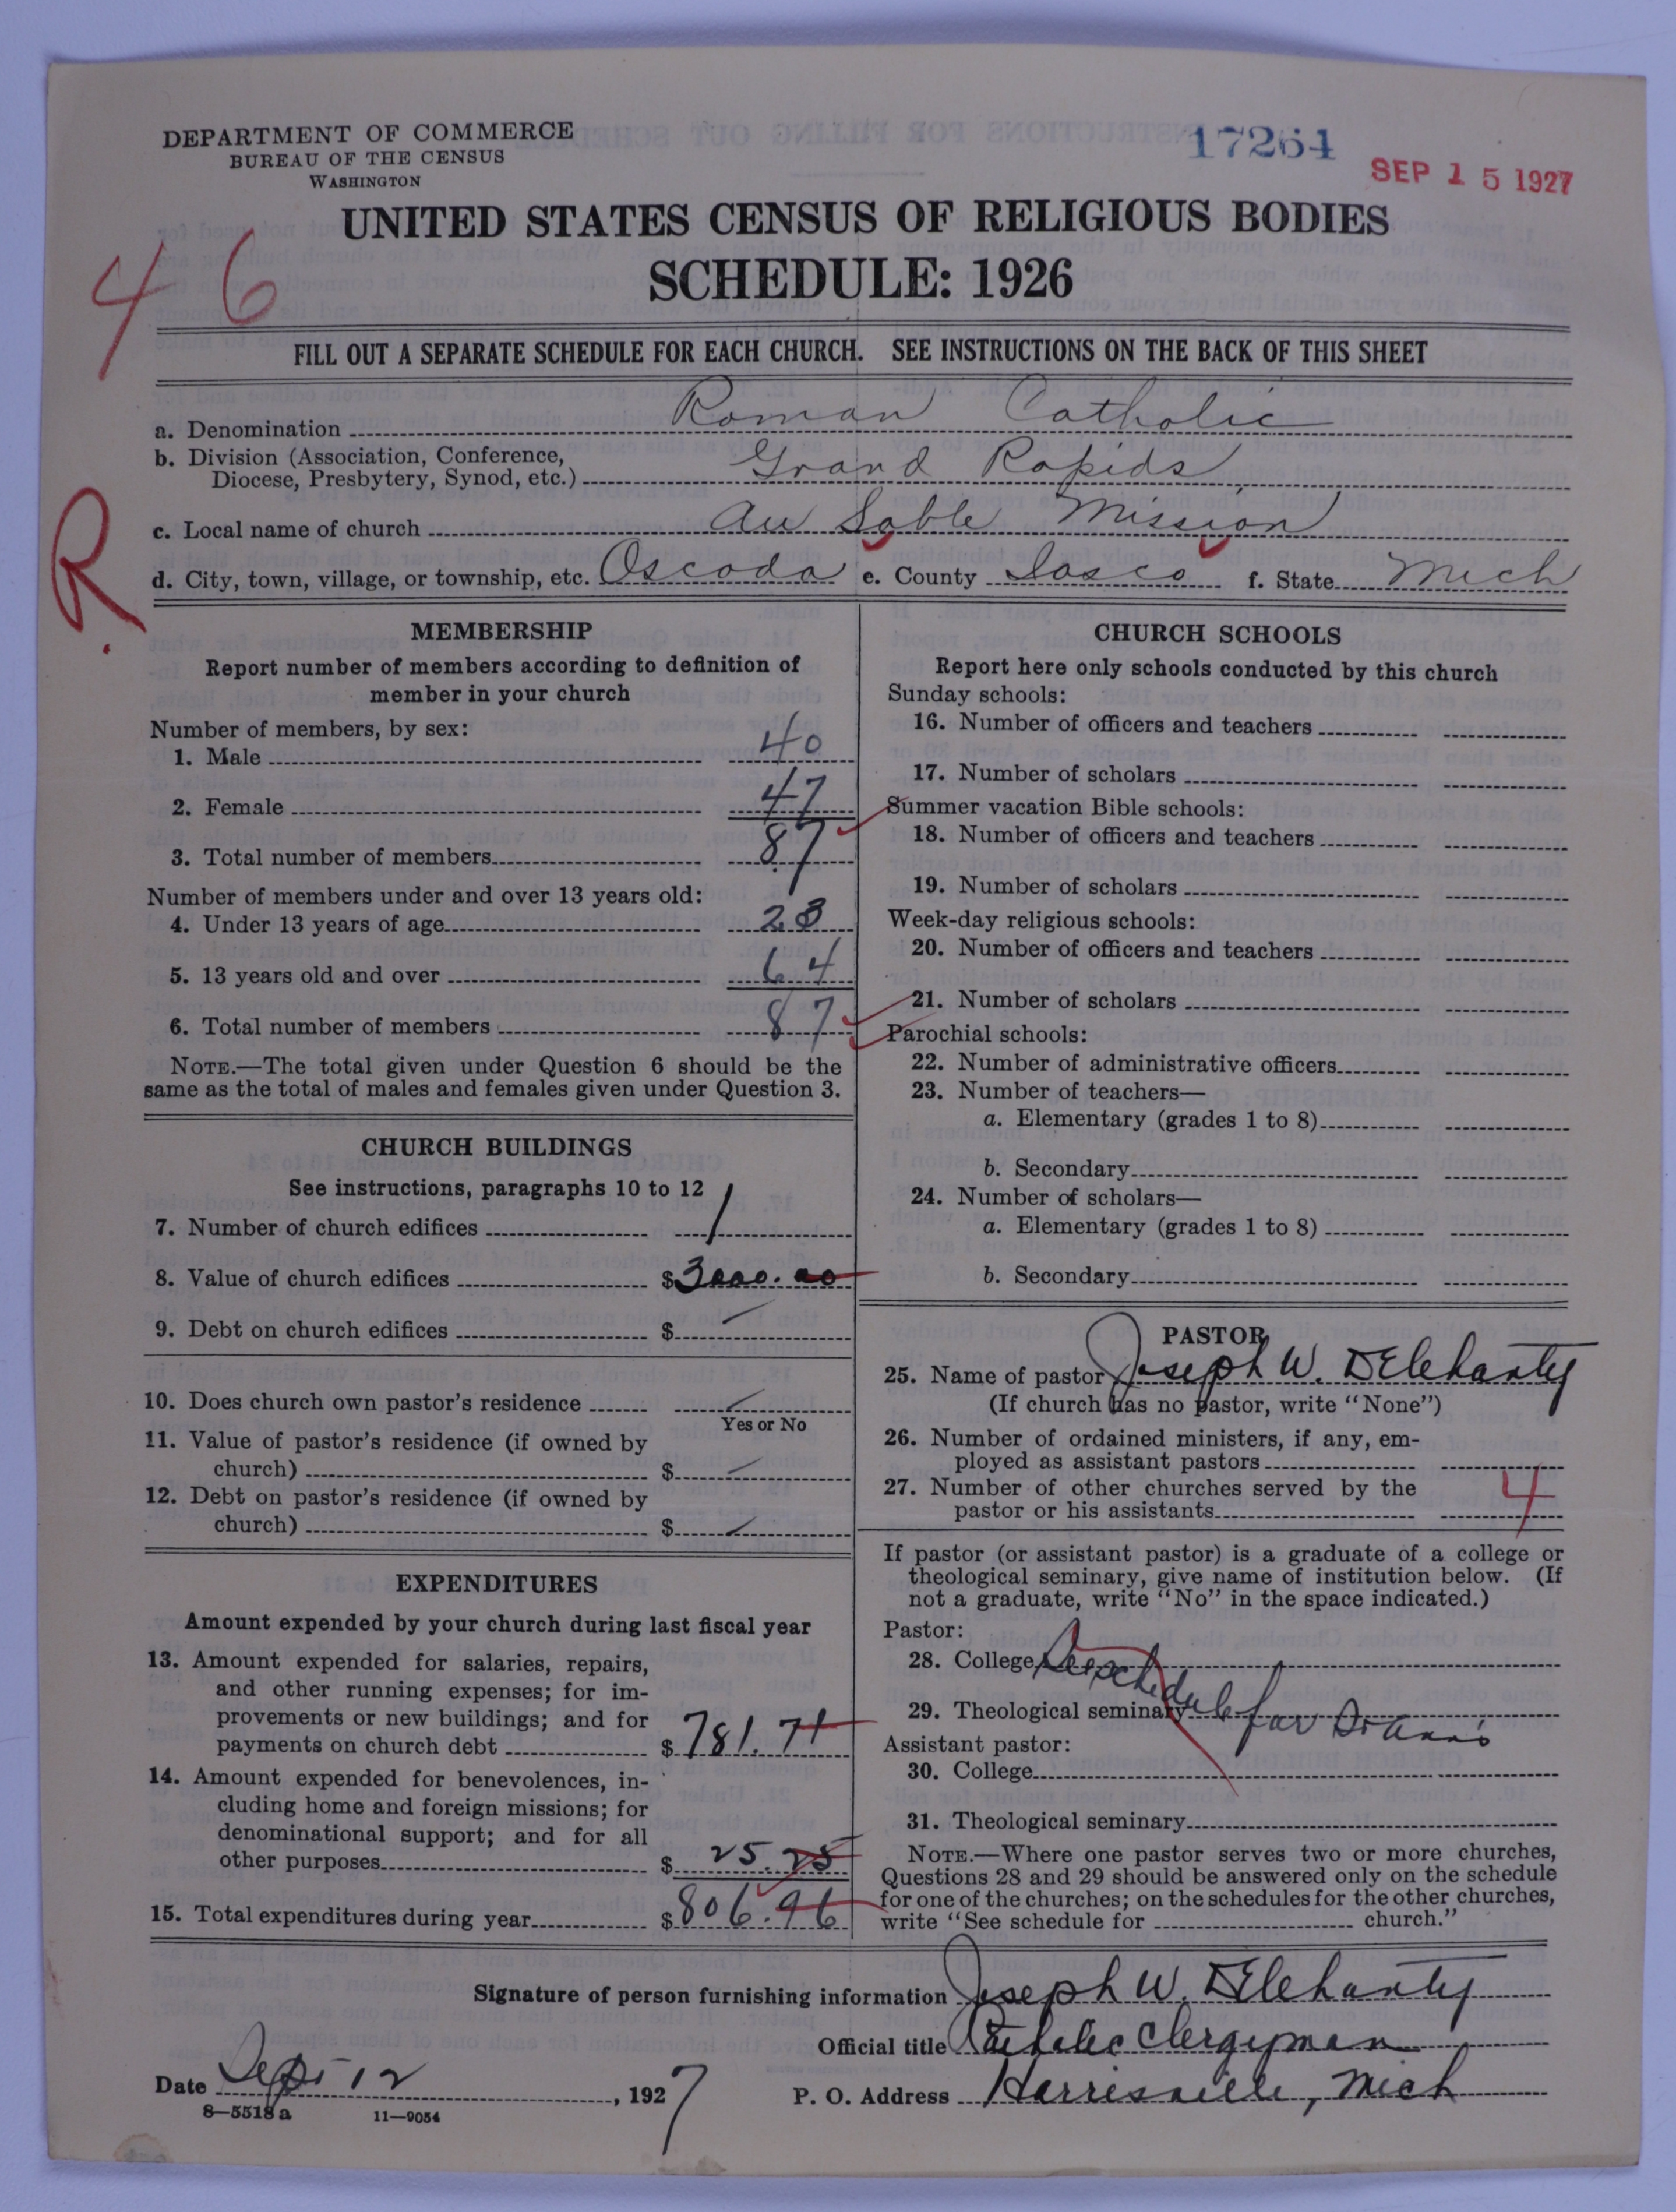 DEPARTMENT OF COMMERCE
BUREAU OF THE CENSUS
WASHINGTON
17264
SEP 15 1927
UNITED STATES CENSUS OF RELIGIOUS BODIES
SCHEDULE: 1926
46
FILL OUT A SEPARATE SCHEDULE FOR EACH CHURCH. SEE INSTRUCTIONS ON THE BACK OF THIS SHEET
a. Denomination Roman Catholic
b. Division (Association, Conference,
Diocese, Presbytery, Synod, etc.) Grand Rapids
c. Local name of church Au Sable Mission
R.
d. City, town, village, or township, etc. Oscoda e. County Iosco f. State Mich
MEMBERSHIP
Report number of members according to definition of
member in your church
Number of members, by sex:
1. Male 40
2. Female 47
3. Total number of members 87
Number of members under and over 13 years old:
4. Under 13 years of age 23
5. 13 years old and over 64
6. Total number of members 87
NOTE.—The total given under Question 6 should be the
same as the total of males and females given under Question 3.
CHURCH BUILDINGS
See instructions, paragraphs 10 to 12
7. Number of church edifices 1
8. Value of church edifices $3000.00
9. Debt on church edifices $
10. Does church own pastor's residence
Yes or No
11. Value of pastor's residence (if owned by
church) $
12. Debt on pastor's residence (if owned by
church) $
EXPENDITURES
Amount expended by your church during last fiscal year
13. Amount expended for salaries, repairs,
and other running expenses; for im-
provements or new buildings; and for
payments on church debt $781.71
14. Amount expended for benevolences, in-
cluding home and foreign missions; for
denominational support; and for all
other purposes $25.25
15. Total expenditures during year $806.96
CHURCH SCHOOLS
Report here only schools conducted by this church
Sunday schools:
16. Number of officers and teachers
17. Number of scholars
Summer vacation Bible schools:
18. Number of officers and teachers
19. Number of scholars
Week-day religious schools:
20. Number of officers and teachers
21. Number of scholars
Parochial schools:
22. Number of administrative officers
23. Number of teachers—
a. Elementary (grades 1 to 8)
b. Secondary
24. Number of scholars—
a. Elementary (grades 1 to 8)
b. Secondary
PASTOR
25. Name of pastor Joseph W. DElehanty
(If church has no pastor, write "None")
26. Number of ordained ministers, if any, em-
ployed as assistant pastors
27. Number of other churches served by the
pastor or his assistants 4
If pastor (or assistant pastor) is a graduate of a college or
theological seminary, give name of institution below. (If
not a graduate, write "No" in the space indicated.)
Pastor:
28. College See schedule for
29. Theological seminary
Assistant pastor:
30. College
31. Theological seminary
NOTE.—Where one pastor serves two or more churches,
Questions 28 and 29 should be answered only on the schedule
for one of the churches; on the schedules for the other churches,
write "See schedule for church."
Signature of person furnishing information Joseph W. DElehanty
Official title Catholic Clergyman
Date Sept 12, 1927 P. O. Address Harrisville, Mich
8—5518a 11—9054